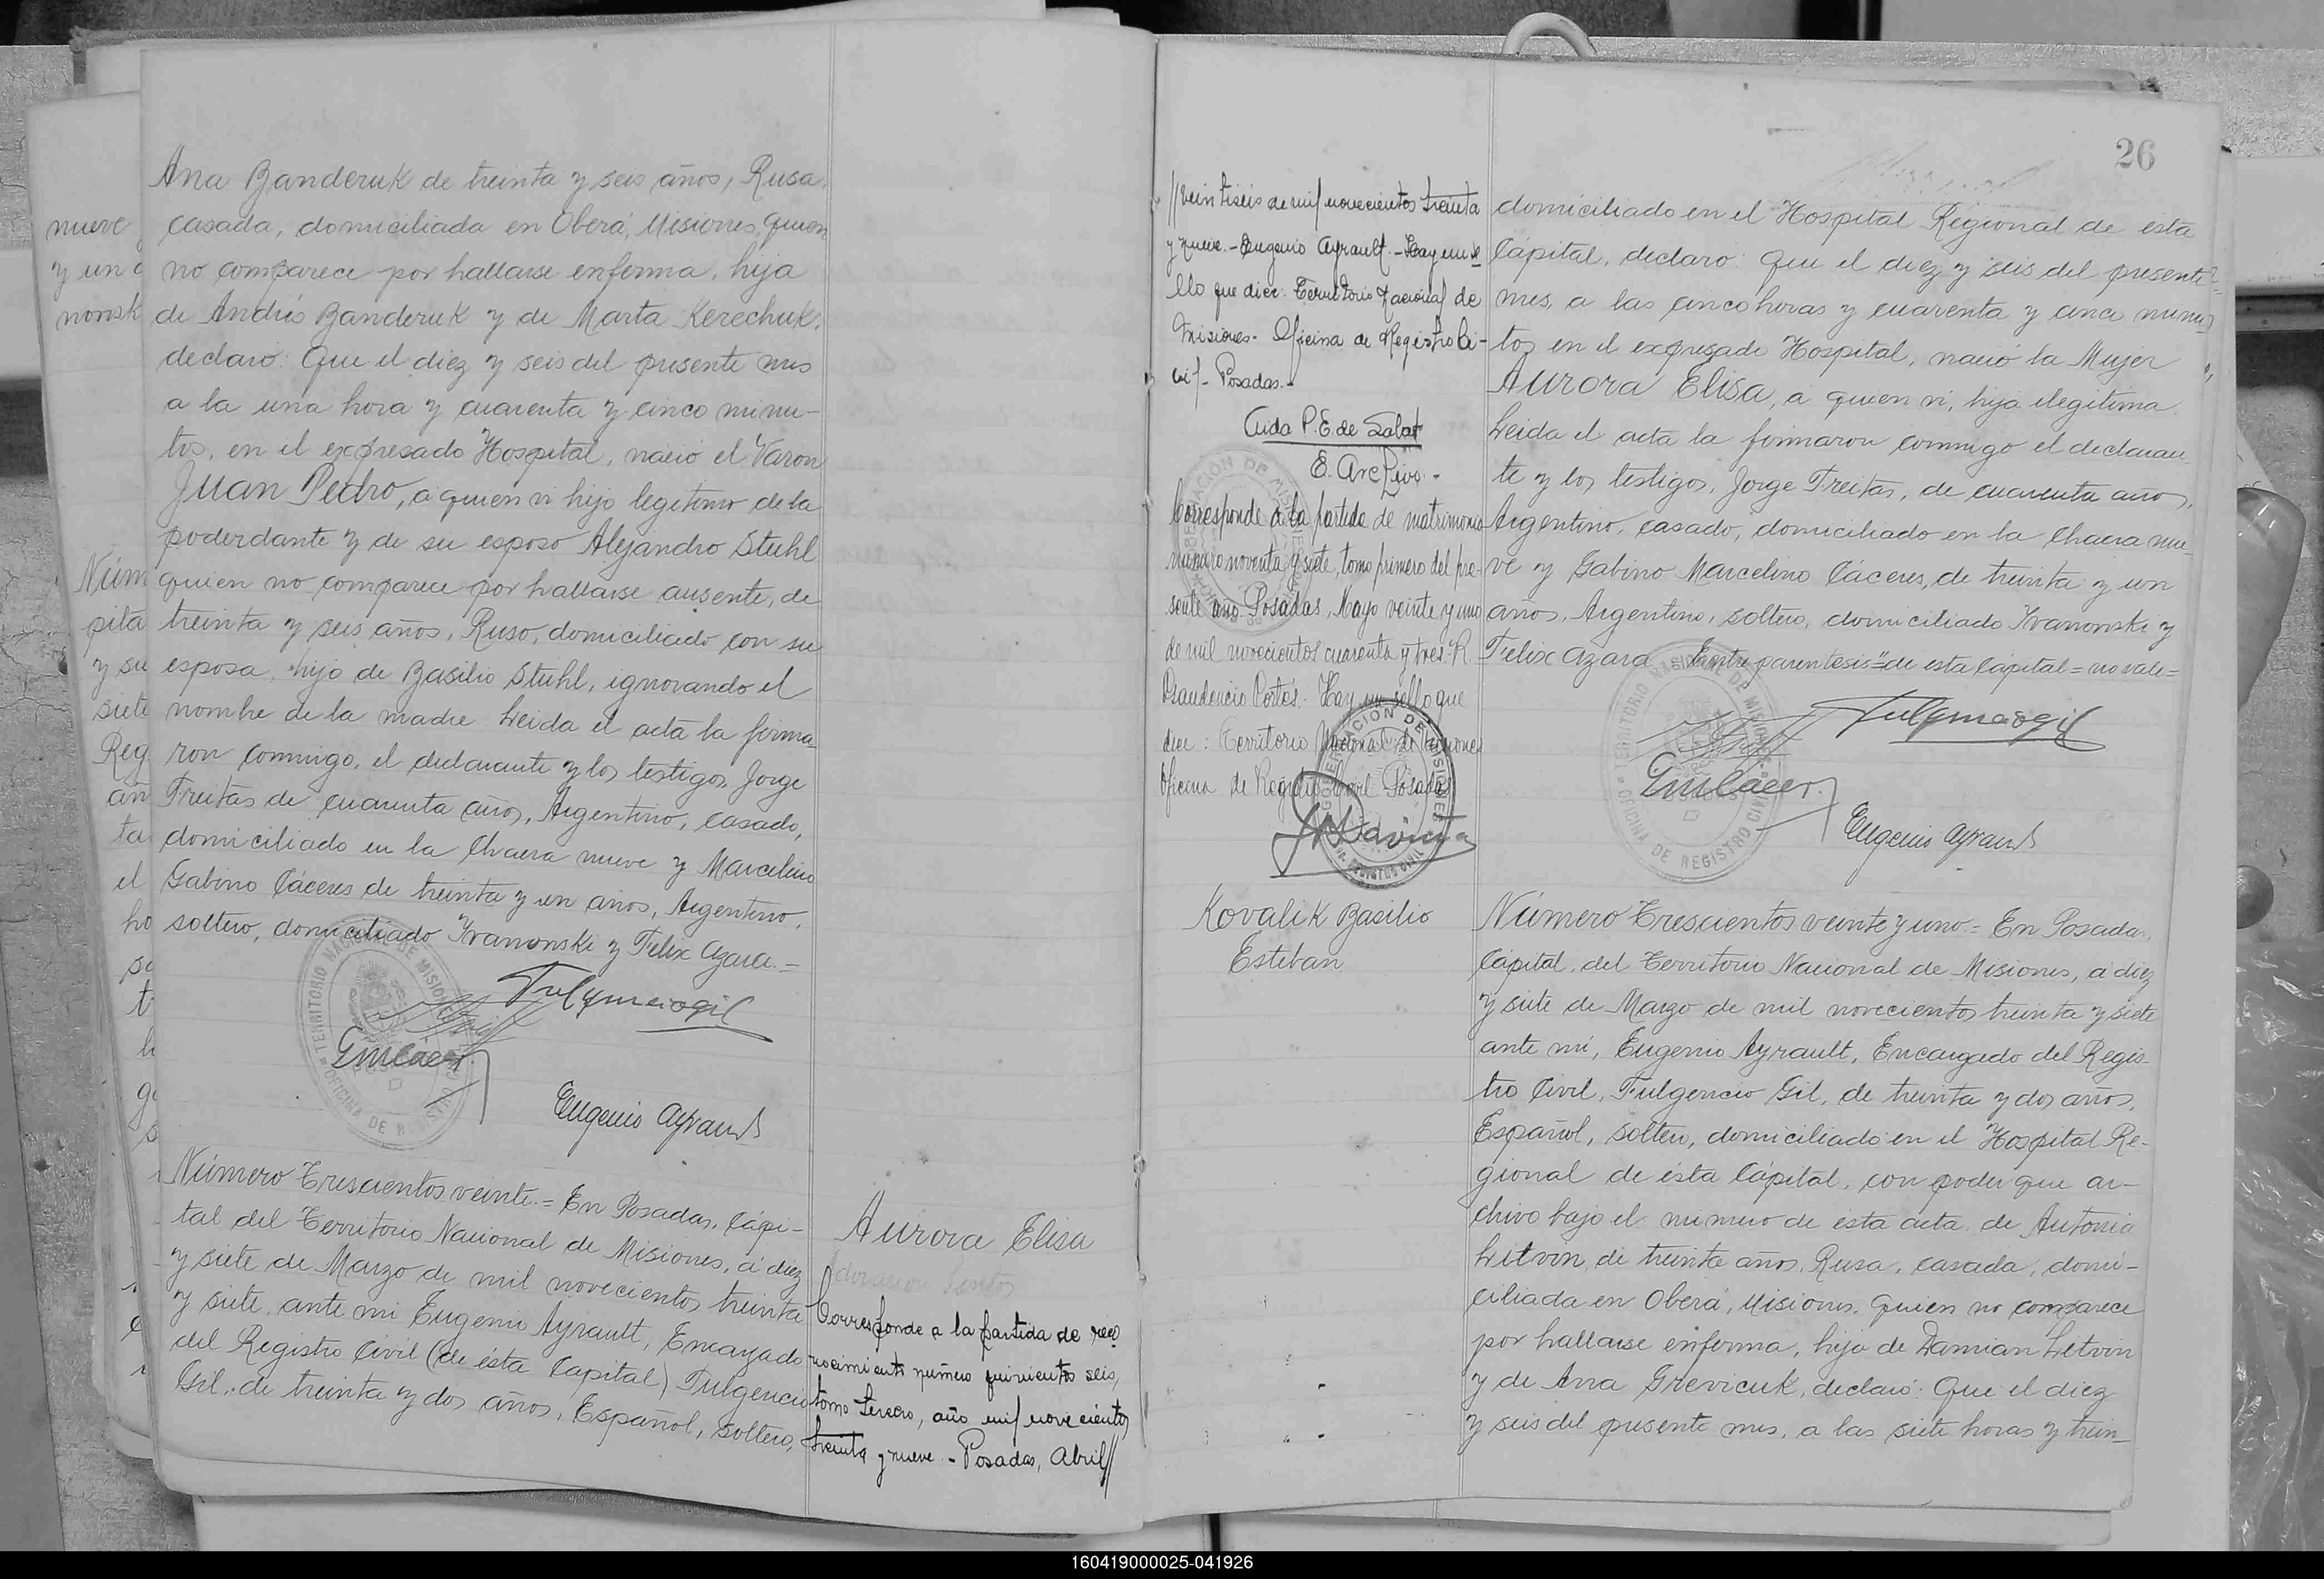 nueve
y un a
nonsk
Núm
pita
y su
siete
Reg
añ
ta
el
ho
Ana Banderuk de treinta y seis años, Rusa,
casada, domiciliada en Oberá, Misiones, quien
no comparece por hallarse enferma, hija
de Andrés Banderuk y de Marta Kerechuk,
declaró: Que el diez y seis del presente mes
a la una hora y cuarenta y cinco minu-
tos, en el expresado Hospital, nació el Varon
Juan Pedro, a quien vi hijo legitimo de la
poderdante y de su esposo Alejandro Stuhl
quien no comparece por hallarse ausente, de
treinta y seis años, Ruso, domiciliado con su
esposa, hijo de Basilio Stuhl, ignorando el
nombre de la madre. Leida el acta la firma-
ron conmigo, el declarante y los testigos, Jorge
Freitas de cuarenta años, Argentino, casado,
domiciliado en la Chacra nueve y Marcelino
Gabino Cáceres de treinta y un años, Argentino,
soltero, domiciliado Yvanonski y Felix Azara.=
TERRITORIO NACIONAL DE MISIONES
OFICINA DE REGISTRO CIVIL
Eugenio Ayrault
Número Trescientos veinte.= En Posadas, Cápi-
tal del Territorio Nacional de Misiones, a diez
y siete de Marzo de mil novecientos treinta
y siete, ante mi Eugenio Ayrault, Encargado
del Registro Civil (de ésta Capital) Fulgencio
Gil, de treinta y dos años, Español, soltero,
Aurora Elisa
Corresponde a la partida de reco
nocimiento número quinientos seis,
tomo tercero, año mil novecientos
treinta y nueve - Posadas, Abril//
//veintiseis de mil novecientos treinta
y nueve.- Eugenio Ayrault.- Hay un se
llo que dice: Territorio Nacional de
Misiones.- Oficina de Registro Ci-
vil - Posadas.-
Aida P. E. de Sabat
E. Archivo.-
Corresponde a la partida de matrimonio
número noventa y siete, tomo primero del pre-
sente año Posadas, Mayo veinte y uno
de mil novecientos cuarenta y tres. R
Prudencio Portes.- Hay un sello que
dice: Territorio Nacional de Misiones
Oficina de Registro Civil Posadas
GOBERNACION DE MISIONES
REGISTRO CIVIL
Kovalik Basilio
Esteban
26
domiciliado en el Hospital Regional de esta
Cápital, declaró: Que el diez y seis del presente
mes, a las cinco horas y cuarenta y cinco minu
tos en el expresado Hospital, nació la Mujer
Aurora Elisa, a quien vi, hija ilegitima.
Leida el acta la firmaron conmigo el declaran
te y los testigos, Jorge Freitas, de cuarenta años,
Argentino, casado, domiciliado en la Chacra nue-
ve y Gabino Marcelino Cáceres, de treinta y un
años, Argentino, soltero, domiciliado Yvanonski y
Felix Azara. Entre parentesis "de esta Cápital = no vale=
TERRITORIO NACIONAL DE MISIONES
OFICINA DE REGISTRO CIVIL
Eugenio Ayrault
Número Trescientos veinte y uno.= En Posadas,
Cápital, del Territorio Nacional de Misiones, a diez
y siete de Marzo de mil novecientos treinta y siete
ante mi, Eugenio Ayrault, Encargado del Regis-
tro Civil, Fulgencio Gil, de treinta y dos años,
Español, soltero, domiciliado en el Hospital Re-
gional de ésta Cápital, con poder que ar-
chivo bajo el numero de esta acta, de Antonia
Litvin, de treinta años, Rusa, casada, domi-
ciliada en Oberá, Misiones, quien no comparece
por hallarse enferma, hija de Damian Litvin
y de Ana Grevicuk, declaró: Que el diez
y seis del presente mes, a las siete horas y trein-
160419000025-041926